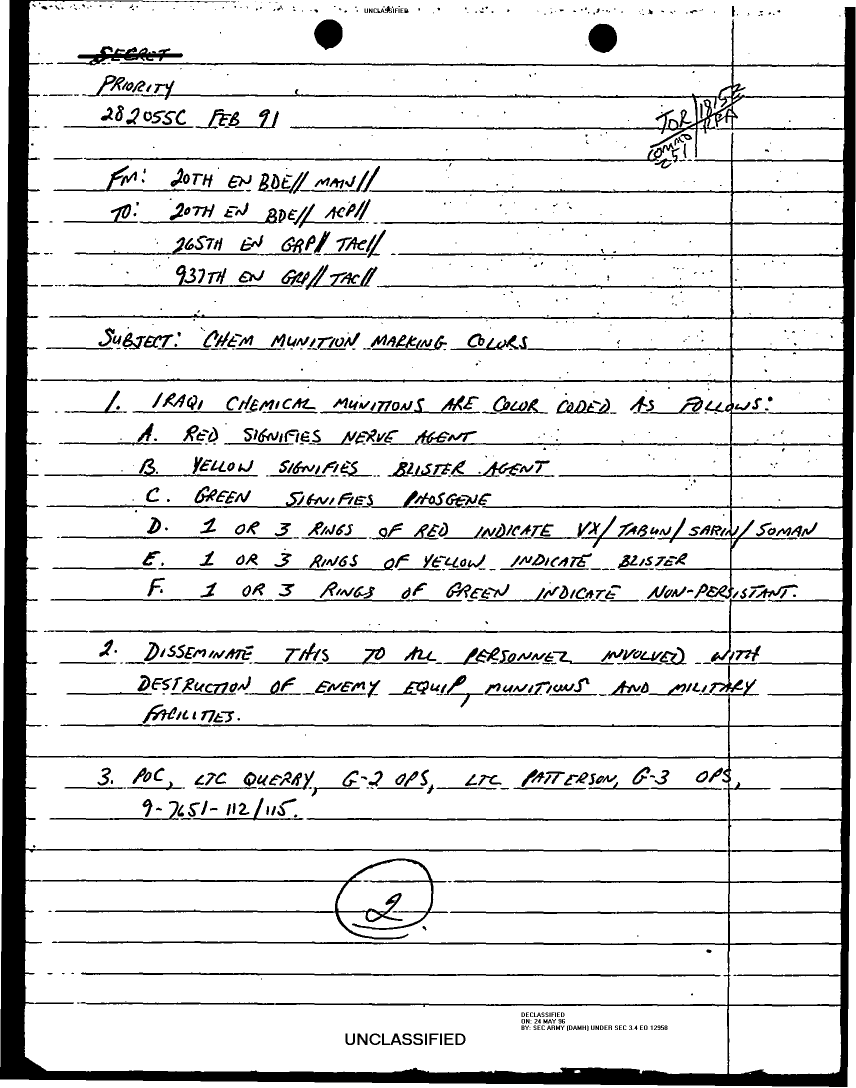 UNCLASSIFIED
SECRET
PRIORITY
282055C FEB 91
TOR/1815Z
COMMO/RPA
251
FM: 20TH EN BDE// MAIN//
TO: 20TH EN BDE// ACP//
265TH EN GRP// TAC//
937TH EN GRP// TAC//
SUBJECT: CHEM MUNITION MARKING COLORS
1. IRAQI CHEMICAL MUNITIONS ARE COLOR CODED AS FOLLOWS:
A. RED SIGNIFIES NERVE AGENT
B. YELLOW SIGNIFIES BLISTER AGENT
C. GREEN SIGNIFIES PHOSGENE
D. 1 OR 3 RINGS OF RED INDICATE VX/TABUN/SARIN/SOMAN
E. 1 OR 3 RINGS OF YELLOW INDICATE BLISTER
F. 1 OR 3 RINGS OF GREEN INDICATE NON-PERSISTANT.
2. DISSEMINATE THIS TO ALL PERSONNEL INVOLVED WITH
DESTRUCTION OF ENEMY EQUIP, MUNITIONS AND MILITARY
FACILITIES.
3. POC, LTC QUERRY, G-2 OPS, LTC PATTERSON, G-3 OPS,
9-7651-112/115.
2
DECLASSIFIED
ON: 24 MAY 96
BY: SEC ARMY (DAMH) UNDER SEC 3.4 EO 12958
UNCLASSIFIED